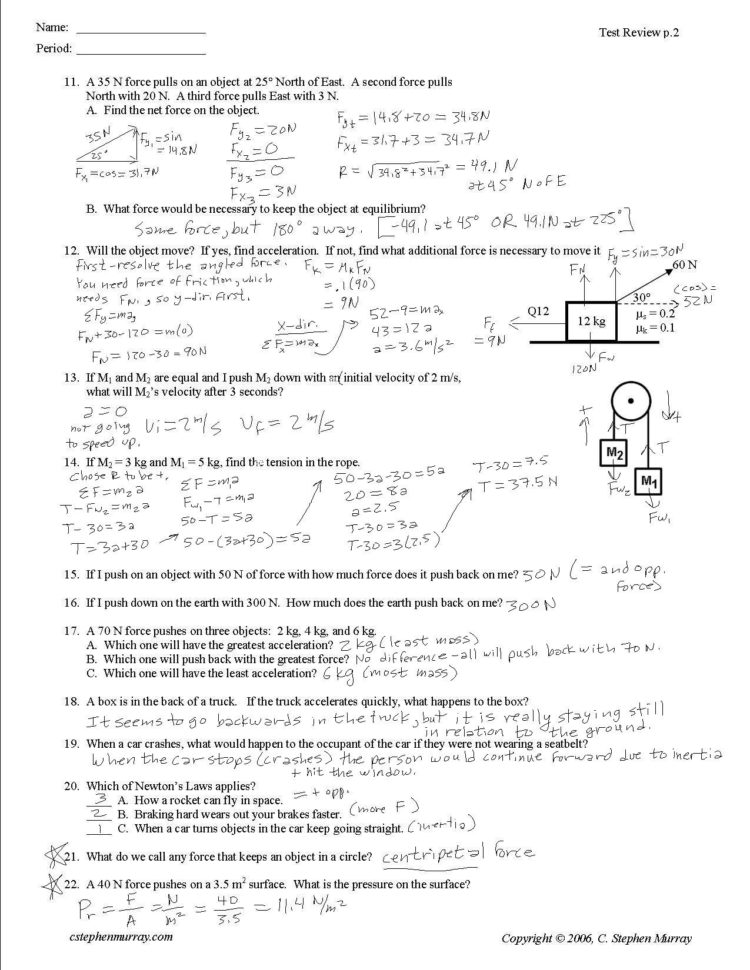 Name: ____________________
Test Review p.2
Period: ____________________
11. A 35 N force pulls on an object at 25° North of East. A second force pulls
North with 20 N. A third force pulls East with 3 N.
A. Find the net force on the object.
35N
25°
Fy₁ = sin
= 14.8N
Fx₁ = cos = 31.7N
Fy₂ = 20N
Fx₂ = 0
Fy₃ = 0
Fx₃ = 3N
Fyt = 14.8 + 20 = 34.8N
Fxt = 31.7 + 3 = 34.7N
R = √34.8² + 34.7² = 49.1 N
at 45° N of E
B. What force would be necessary to keep the object at equilibrium?
Same force, but 180° away. [-49.1 at 45° OR 49.1N at 225°]
12. Will the object move? If yes, find acceleration. If not, find what additional force is necessary to move it
First-resolve the angled force.
You need force of friction, which
needs FN, so y-dir. first.
ΣFy = may
FN + 30 - 120 = m(0)
FN = 120 - 30 = 90N
Fk = μk FN
= .1(90)
= 9N
x-dir.
ΣFx = max
52 - 9 = max
43 = 12a
a = 3.6 m/s²
Fy = sin = 30N
FN
60 N
30°
(cos) =
52N
Q12
12 kg
μs = 0.2
μk = 0.1
Ff
= 9N
Fw
120N
13. If M₁ and M₂ are equal and I push M₂ down with an initial velocity of 2 m/s,
what will M₂'s velocity after 3 seconds?
a = 0
not going
to speed up.
Vi = 2 m/s Vf = 2 m/s
+
+
T
T
M₂
M₁
Fw₂
Fw₁
14. If M₂ = 3 kg and M₁ = 5 kg, find the tension in the rope.
Chose R to be +,
ΣF = m₂a
T - Fw₂ = m₂a
T - 30 = 3a
T = 3a + 30
ΣF = ma
Fw₁ - T = m₁a
50 - T = 5a
50 - (3a + 30) = 5a
50 - 3a - 30 = 5a
20 = 8a
a = 2.5
T - 30 = 3a
T - 30 = 3(2.5)
T - 30 = 7.5
T = 37.5 N
15. If I push on an object with 50 N of force with how much force does it push back on me? 50N (= and opp.
force)
16. If I push down on the earth with 300 N. How much does the earth push back on me? 300N
17. A 70 N force pushes on three objects: 2 kg, 4 kg, and 6 kg.
A. Which one will have the greatest acceleration? 2 kg (least mass)
B. Which one will push back with the greatest force? No difference - all will push back with 70 N.
C. Which one will have the least acceleration? 6 kg (most mass)
18. A box is in the back of a truck. If the truck accelerates quickly, what happens to the box?
It seems to go backwards in the truck, but it is really staying still
in relation to the ground.
19. When a car crashes, what would happen to the occupant of the car if they were not wearing a seatbelt?
When the car stops (crashes) the person would continue forward due to inertia
+ hit the window.
20. Which of Newton's Laws applies?
3 A. How a rocket can fly in space. = + opp.
2 B. Braking hard wears out your brakes faster. (more F)
1 C. When a car turns objects in the car keep going straight. (inertia)
21. What do we call any force that keeps an object in a circle? centripetal force
22. A 40 N force pushes on a 3.5 m² surface. What is the pressure on the surface?
Pr = F/A = N/m² = 40/3.5 = 11.4 N/m²
cstephenmurray.com
Copyright © 2006, C. Stephen Murray